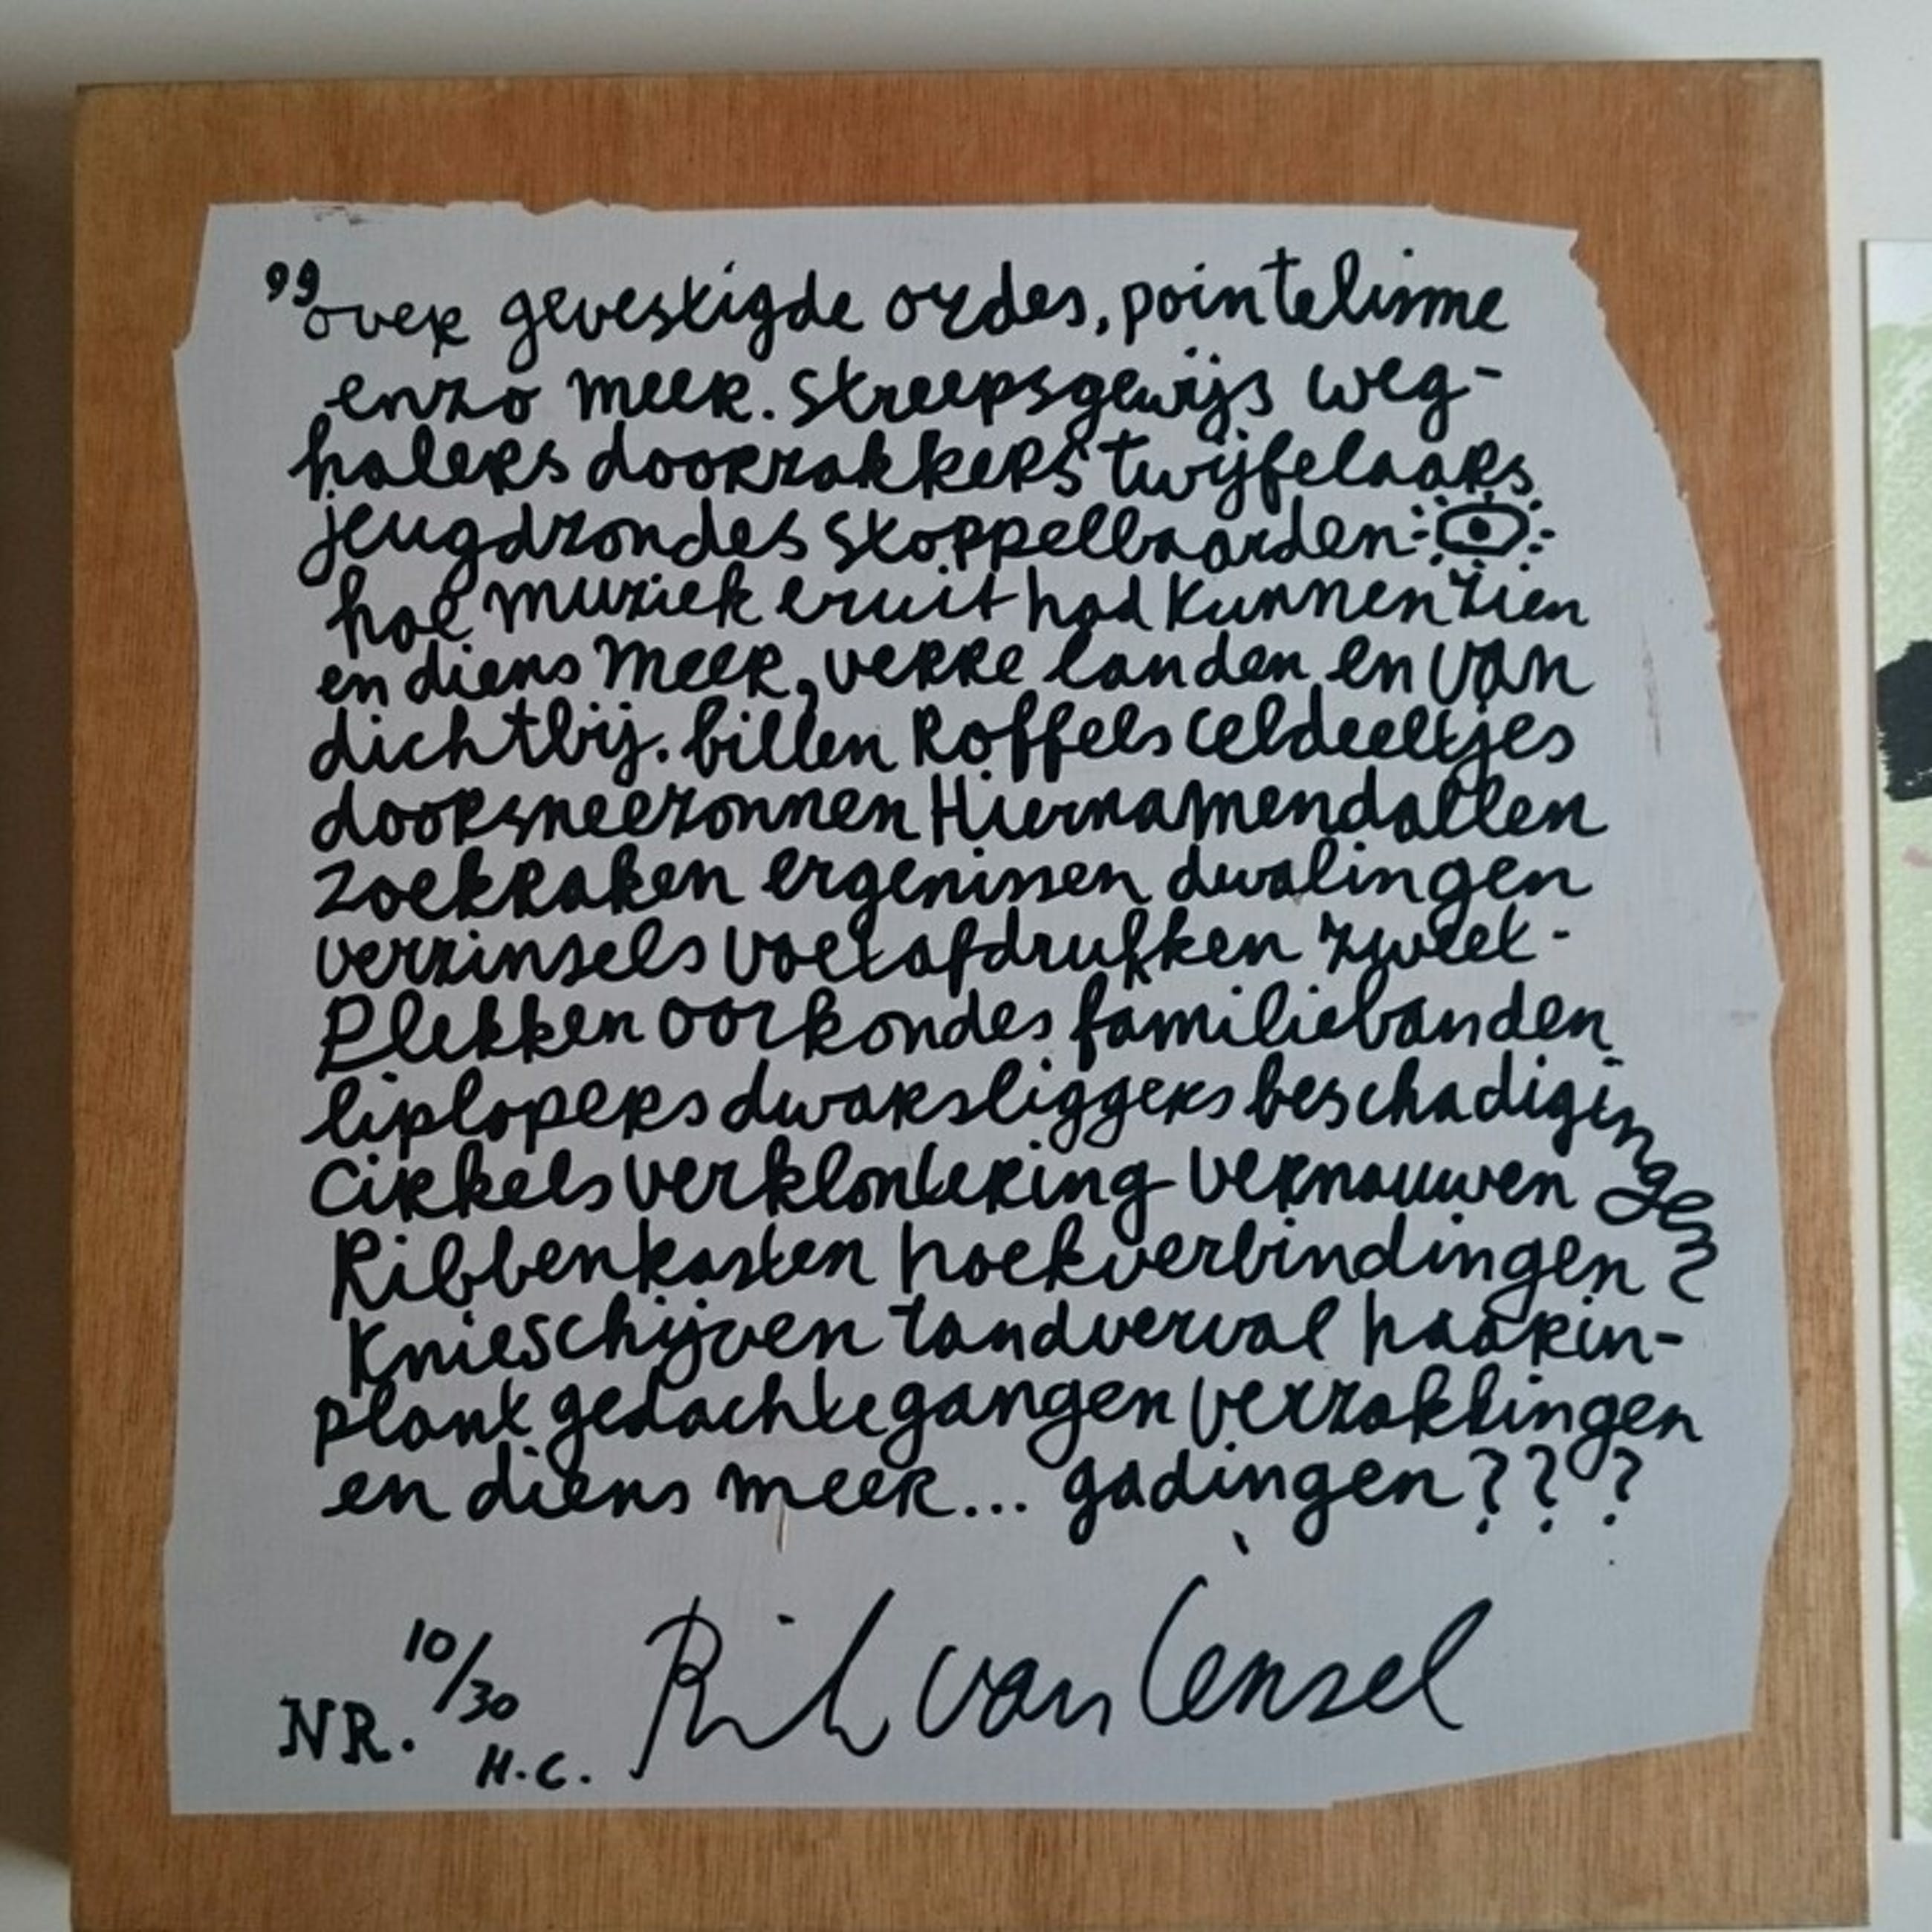 "over gevestigde ordes, pointelisme
enzo meer. streepsgewijs weg-
halers doorzakkers twijfelaars
jeugdzondes stoppelbaarden
hoe muziek eruit had kunnen zien
en diens meer, verre landen en van
dichtbij. billen Roffels celdeeltjes
doorsneezonnen Hiernamendallen
zoekraken ergenissen dwalingen
verzinsels voetafdrukken zweet-
Plekken oorkondes familiebanden
liplopers dwarsliggers beschadigingen
Cirkels verklontering vernauwen
Ribbenkasten hoekverbindingen
Knieschijven tandverval haarin-
plant gedachtegangen verzakkingen
en diens meer... gadingen ? ? ?
NR. 10/30 H.C. Rik van Iersel